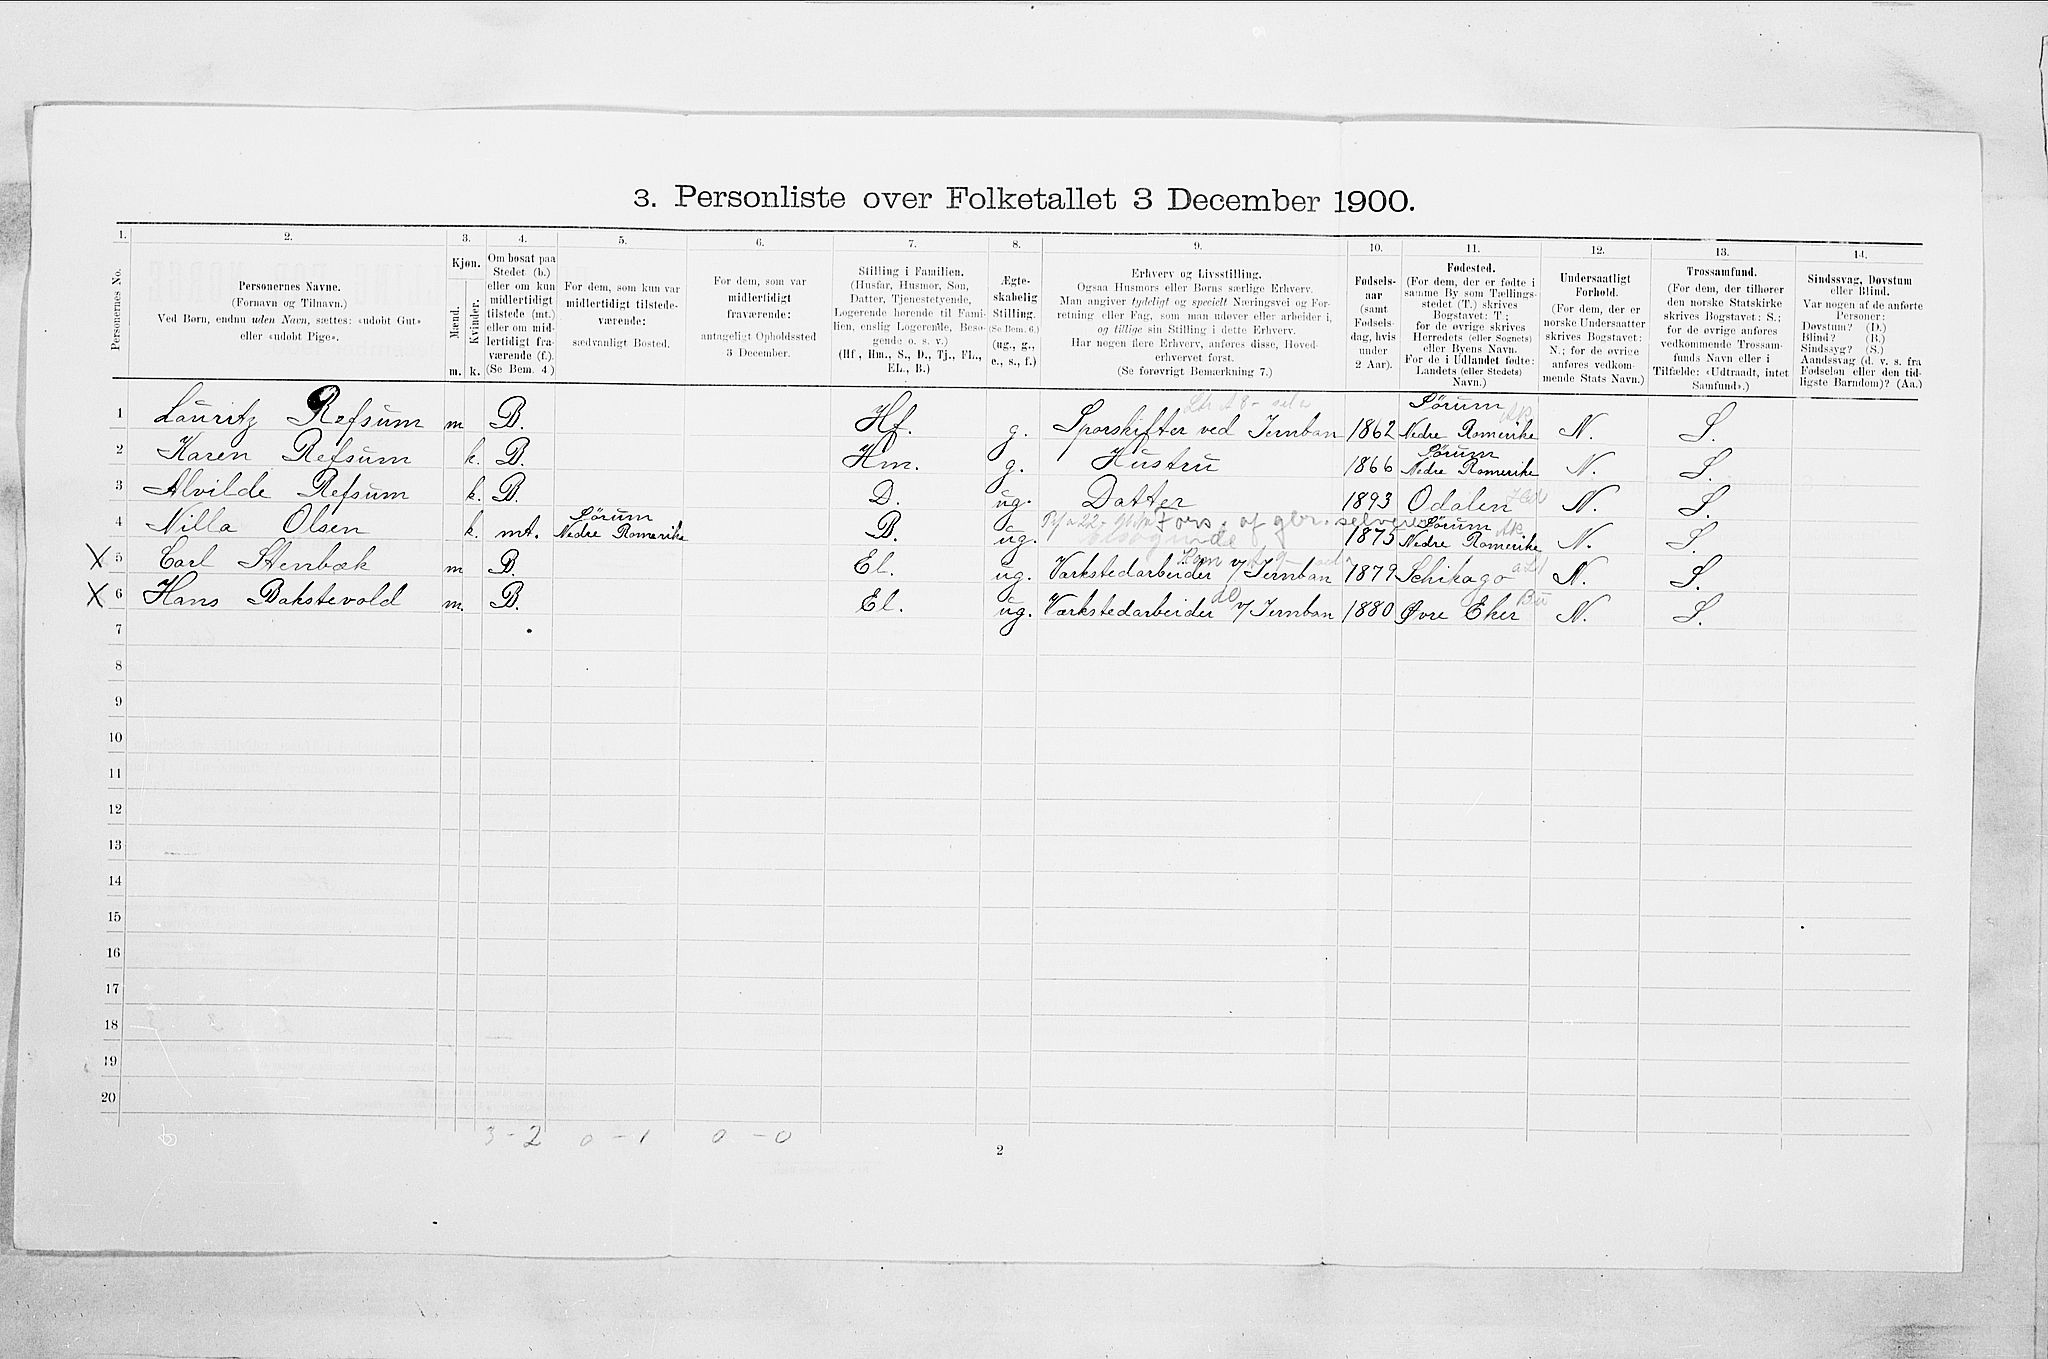 3. Personliste over Folketallet 3 December 1900.
1. 2. 3. 4. 5. 6. 7. 8. 9. 10. 11. 12. 13. 14.
Personernes No.
Personernes Navne.
(Fornavn og Tilnavn.)
Ved Børn, endnu uden Navn, sættes: «udøbt Gut»
eller «udøbt Pige».
Kjøn.
Mænd.
Kvinder.
m. k.
Om bosat paa
Stedet (b.)
eller om kun
midlertidigt
tilstede (mt.)
eller om mid-
lertidigt fra-
værende (f.).
(Se Bem. 4.)
For dem, som kun var
midlertidigt tilstede-
værende:
sædvanligt Bosted.
For dem, som var
midlertidigt
fraværende:
antageligt Opholdssted
3 December.
Stilling i Familien.
(Husfar, Husmor, Søn,
Datter, Tjenestetyende,
Logerende hørende til Fami-
lien, enslig Logerende, Besø-
gende o. s. v.)
(Hf., Hm., S., D., Tj., FL.,
EL., B.)
Ægte-
skabelig
Stilling.
(Se Bem. 6.)
(ug., g.,
e., s., f.)
Erhverv og Livsstilling.
Ogsaa Husmors eller Børns særlige Erhverv.
Man angiver tydeligt og specielt Næringsvei og For-
retning eller Fag, som man udøver eller arbeider i,
og tillige sin Stilling i dette Erhverv.
Har nogen flere Erhverv, anføres disse, Hoved-
erhvervet først.
(Se forøvrigt Bemærkning 7.)
Fødsels-
aar
(samt
Fødsels-
dag, hvis
under
2 Aar).
Fødested.
(For dem, der er fødte i
samme By som Tællings-
stedet (T.) skrives
Bogstavet: T.;
for de øvrige skrives
Herredets (eller Sognets)
eller Byens Navn.
For de i Udlandet fødte:
Landets (eller Stedets)
Navn.)
Undersaatligt
Forhold.
(For dem, der er
norske Undersaatter
skrives Bogstavet:
N.; for de øvrige
anføres vedkom-
mende Stats Navn.)
Trossamfund.
(For dem, der tilhører
den norske Statskirke
skrives Bogstavet: S.;
for de øvrige anføres
vedkommende Trossam-
funds Navn eller i
Tilfælde: «Udtraadt, intet
Samfund».)
Sindssvag, Døvstum
eller Blind.
Var nogen af de anførte
Personer:
Døvstum? (D.)
Blind? (B.)
Sindssyg? (S.)
Aandssvag (d. v. s. fra
Fødselen eller den tid-
ligste Barndom)? (Aa.)
1 Lauritz Refsum m B. Hf. g. Sporskifter ved Jernban 1862 Sørum Nedre Romerike N. S.
2 Karen Refsum k. B. Hm. g. Hustru 1866 Sørum Nedre Romerike N. S.
3 Alvilde Refsum k. B. D. ug. Datter 1893 Odalen N. S.
4 Nilla Olsen k. mt. Sørum Nedre Romerike B. ug. Fors. af gbr. 1873 Sørum Nedre Romerike N. S.
X 5 Carl Stenbæk m B. El. ug. Værkstedarbeider v/ Jernban 1879 Schikago N. S.
X 6 Hans Bakstevold m. B. El. ug. Værkstedarbeider v/ Jernban 1880 Øvre Eker Bu N. S.
7
8
9
10
11
12
13
14
15
16
17
18
19
20
6 3 - 2 0 - 1 0 - 0
2